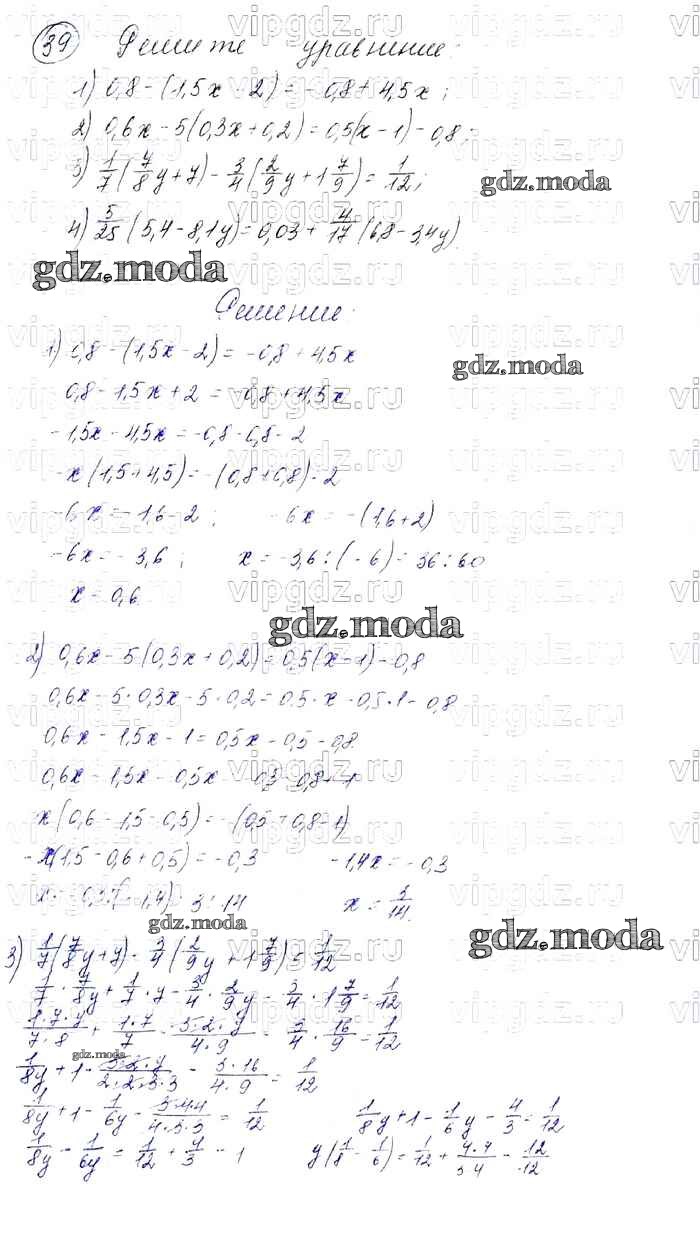 39 Решите уравнение:
1) 0,8 - (1,5x - 2) = -0,8 + 4,5x ;
2) 0,6x - 5(0,3x + 0,2) = 0,5(x - 1) - 0,8 ;
3) 1/7 (7/8 y + 7) - 3/4 (2/9 y + 1 7/9) = 1/12 ;
gdz.moda
4) 5/28 (5,4 - 8,1y) = 0,03 + 4/17 (6,8 - 3,4y)
gdz.moda
Решение:
1) 0,8 - (1,5x - 2) = -0,8 + 4,5x
gdz.moda
0,8 - 1,5x + 2 = -0,8 + 4,5x
-1,5x - 4,5x = -0,8 - 0,8 - 2
-x (1,5 + 4,5) = -(0,8 + 0,8) - 2
-6x = -1,6 - 2 ; -6x = -(1,6 + 2)
-6x = -3,6 ; x = -3,6 : (-6) = 36 : 60
x = 0,6
gdz.moda
2) 0,6x - 5(0,3x + 0,2) = 0,5(x - 1) - 0,8
0,6x - 5·0,3x - 5·0,2 = 0,5·x - 0,5·1 - 0,8
0,6x - 1,5x - 1 = 0,5x - 0,5 - 0,8
0,6x - 1,5x - 0,5x = -0,5 - 0,8 + 1
x (0,6 - 1,5 - 0,5) = -(0,5 + 0,8 - 1)
-x(1,5 - 0,6 + 0,5) = -0,3 -1,4x = -0,3
x = -0,3 : (-1,4) = 3 : 14 x = 3/14
gdz.moda
gdz.moda
3) 1/7 (7/8 y + 7) - 3/4 (2/9 y + 1 7/9) = 1/12
1/7 · 7/8y + 1/7 · 7 - 3/4 · 2/9y - 3/4 · 1 7/9 = 1/12
1·7·y/7·8 + 1·7/7 - 3·2·y/4·9 - 3/4 · 16/9 = 1/12
gdz.moda
1/8y + 1 - 3·2·y/2·2·3·3 - 3·16/4·9 = 1/12
1/8y + 1 - 1/6y - 3·4·4/4·3·3 = 1/12 1/8y + 1 - 1/6 y - 4/3 = 1/12
1/8y - 1/6y = 1/12 + 4/3 - 1 y(1/8 - 1/6) = 1/12 + 4·4/3·4 - 12/12
vipgdz.ru